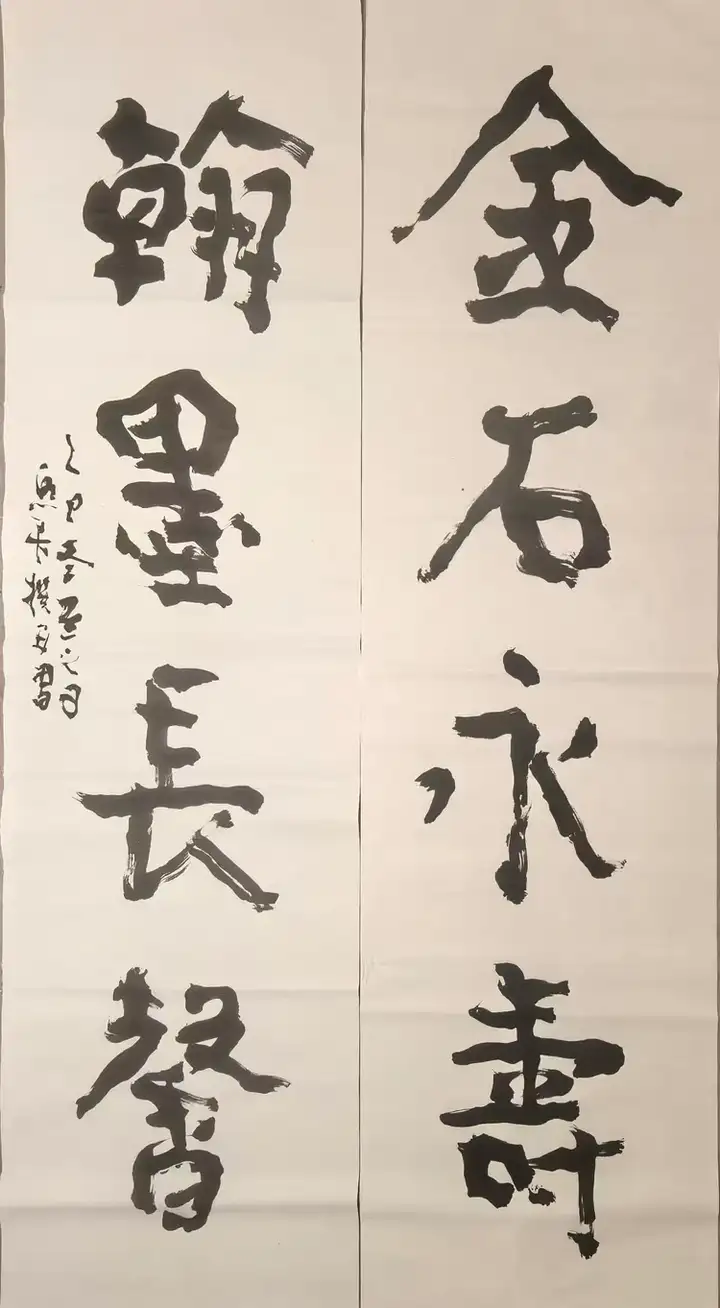 金石永壽
翰墨長馨